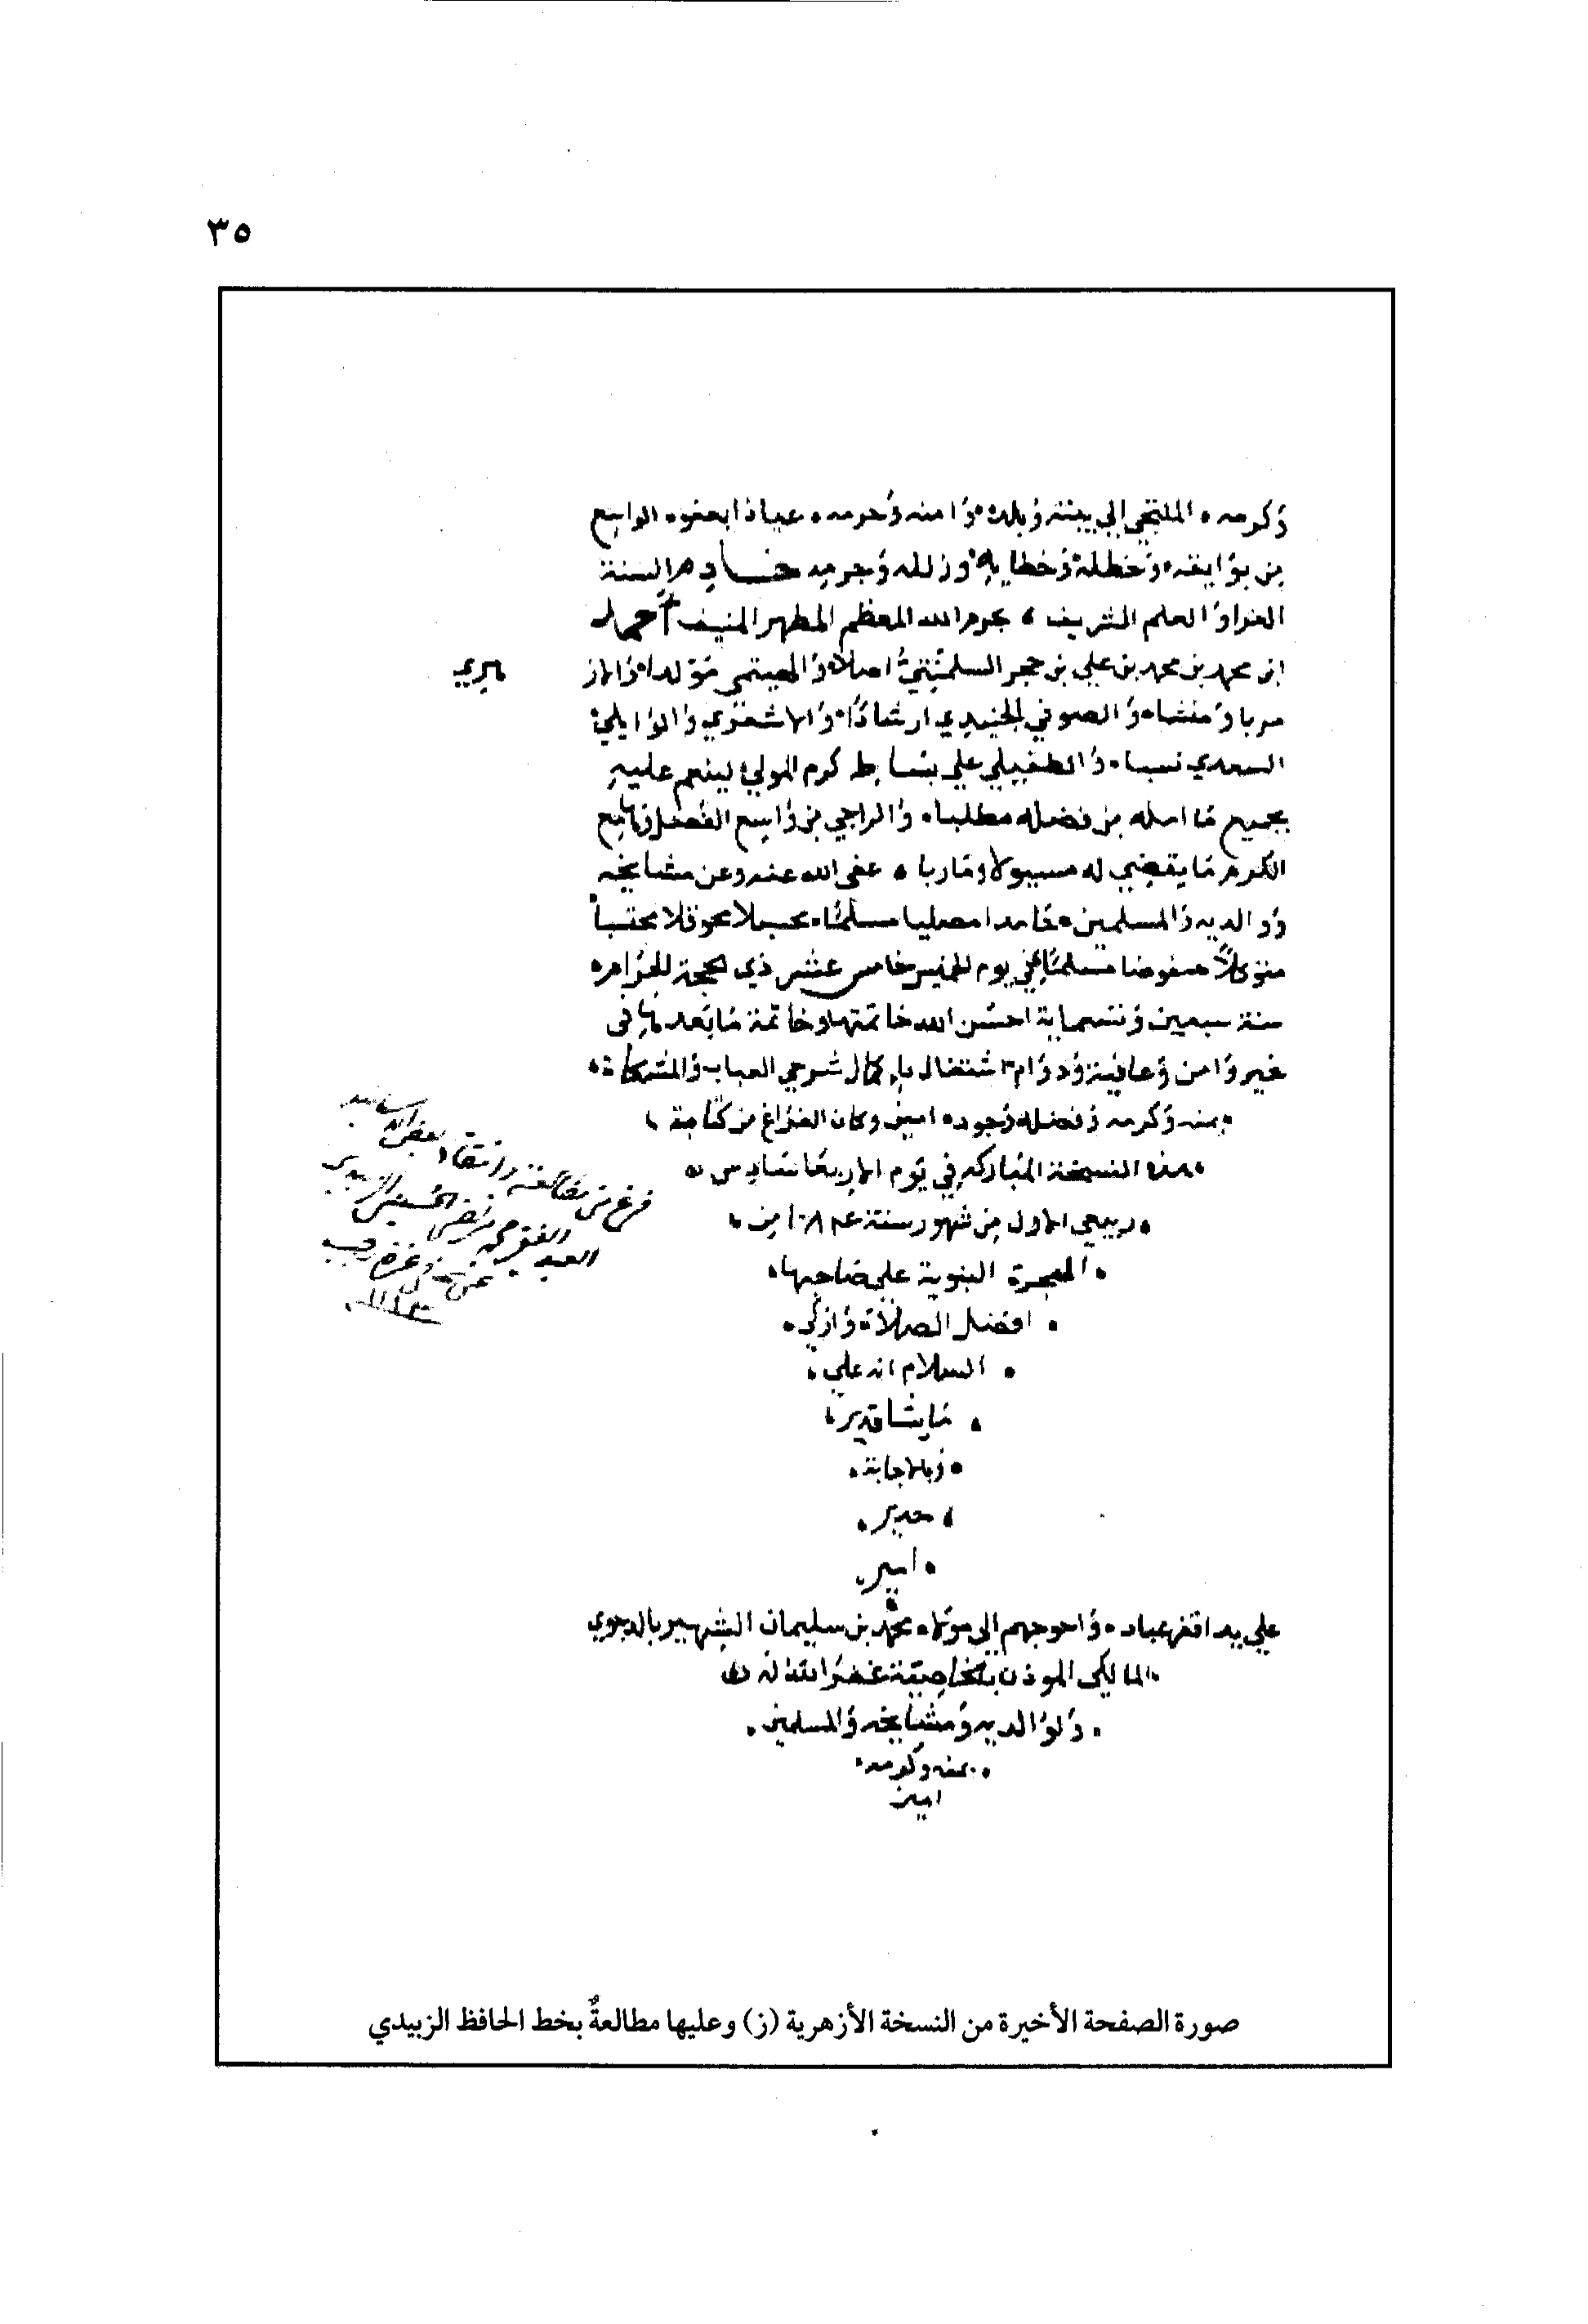 ٣٥
وكرمه الملتجي إلي بيته وبلده وامنه وحرمه عياذا بعفوه الواسع
من بوايقه وخطله وخطاياه وزلله وجرمه خادم السنة
الغرا والعلم الشريف بحرم الله المعظم المطهر المنيف أحمد
ابن محمد بن محمد بن علي بن حجر السلمنتي اصلا والهيتمي مولدا والاز
هري
مربا ومنشا والصوفي الجنيدي ارشادا والاشعري والوايلي
السعدي نسبا والطفيلي علي بساط كرم المولي لينعم عليه
بجميع ما امله من فضله مطلبا والراجي من واسع الفضل وهامع
الكرم ما يقضي له مسيولا ومأربا عفى الله عنه وعن مشايخه
ووالديه والمسلمين حامدا مصليا مسلما محسبلا محوقلا محتسبا
متوكلا مفوضا مسلما في يوم الخميس خامس عشر ذي الحجة الحرام
سنة سبعين وتسعماية احسن الله خاتمتها وخاتمة ما بعدها في
خير وامن وعافية ودوام اشتغال باكمال شرحي العباب والمشكاة
بمنه وكرمه وفضله وجوده امين وكان الفراغ من كتابة
هذه النسخة المباركة في يوم الاربعا سادس
ربيع الاول من شهور سنة من
الهجرة النبوية علي صاحبها
افضل الصلاة وازكي
السلام انه علي
ما يشا قدير
وبالاجابة
جدير
امين
علي يد افقر عباده واحوجهم إلى مولاه محمد بن سليمان الشهير بالدجوي
المالكي الموذن غفر الله له
ولوالديه ومشايخه والمسلمين
بمنه وكرمه
امين
فرغ من مطالعته وانتقاء بعض الاسانيد
العبد الفقير محمد مرتضى الحسيني الزبيدي
في غرة رجب
صورة الصفحة الأخيرة من النسخة الأزهرية (ز) وعليها مطالعةٌ بخط الحافظ الزبيدي